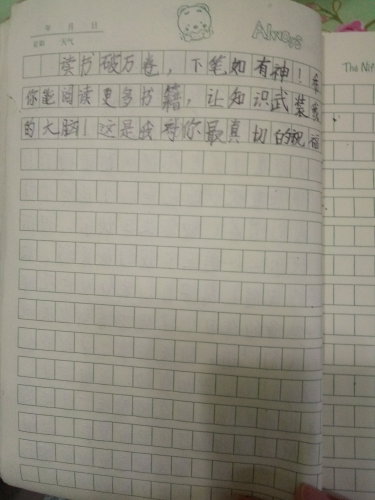 年 月 日
Always
星期 天气
The Ni
读书破万卷，下笔如有神！希
你能阅读更多书籍，让知识武装我
的大脑！这是我对你最真切的祝福